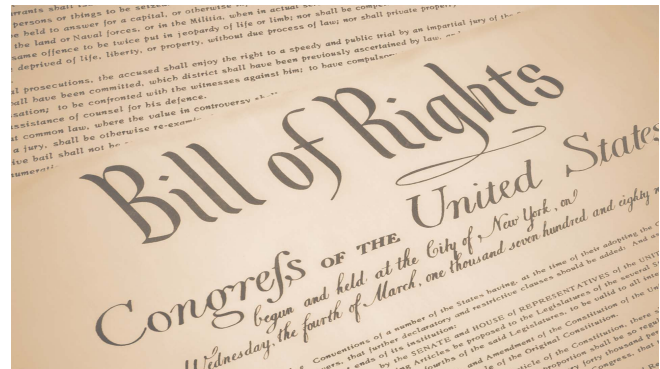 persons or things to be seized
be held to answer for a capital, or otherwise
the land or Naval forces, or in the Militia, when in actual
same offence to be twice put in jeopardy of life or limb; nor shall be
deprived of life, liberty, or property, without due process of law; nor shall private property
prosecutions, the accused shall enjoy the right to a speedy and public trial by an impartial jury of the
shall have been committed, which district shall have been previously ascertained by law,
to be confronted with the witnesses against him; to have
assistance of counsel for his defence.
common law, where the value in controversy
a jury, shall be otherwise
bail shall not
Bill of Rights
Congreſs OF THE United States
begun and held at the City of New York, on
Wednesday, the fourth of March, one thousand seven hundred and eighty
Conventions of a number of the States having, at the time of their adopting the
that further declaratory and restrictive clauses should be added: And
ends of its institution:
by the SENATE and HOUSE of REPRESENTATIVES of the
Articles be proposed to the Legislatures of the several
of the said Legislatures, to be valid to all
and Amendment of the Constitution of the
of the Original Constitution.
of the Constitution, there
shall be so
forty thousand
Congress, that